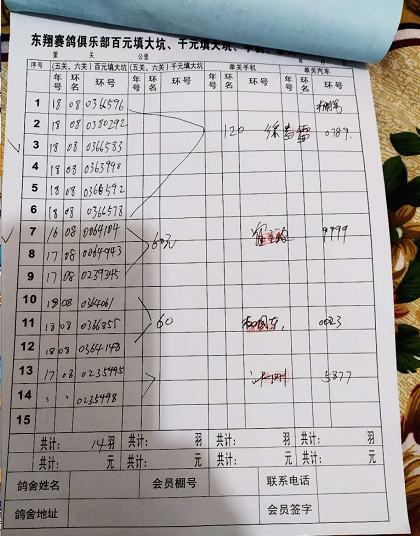 东翔赛鸽俱乐部百元填大坑、千元填大坑、
第 关 公里
序号 (五关、六关) 百元填大坑 (五关、六关) 千元填大坑 单关手机 单关汽车
年号 环名 环号 年号 环名 环号 年号 环名 环号 年号 环名 环号
1 18 08 0366576
2 18 08 0380292 120 0789
3 18 08 0366583
4 18 08 0363998
5 18 08 0366592
6 18 08 0366578
7 16 08 0064184 9999
8 17 08 0064943 60元
9 17 08 0239345
10 18 08 0364061
11 18 08 0366855 60 0023
12 18 08 0364148
13 17 08 0235495 5877
14 〃 〃 0235498
15
共计: 14羽 共计: 羽 共计: 羽 共计: 羽
共计: 元 共计: 元 共计: 元 共计: 元
鸽舍姓名 会员棚号 联系电话
鸽舍地址 会员签字